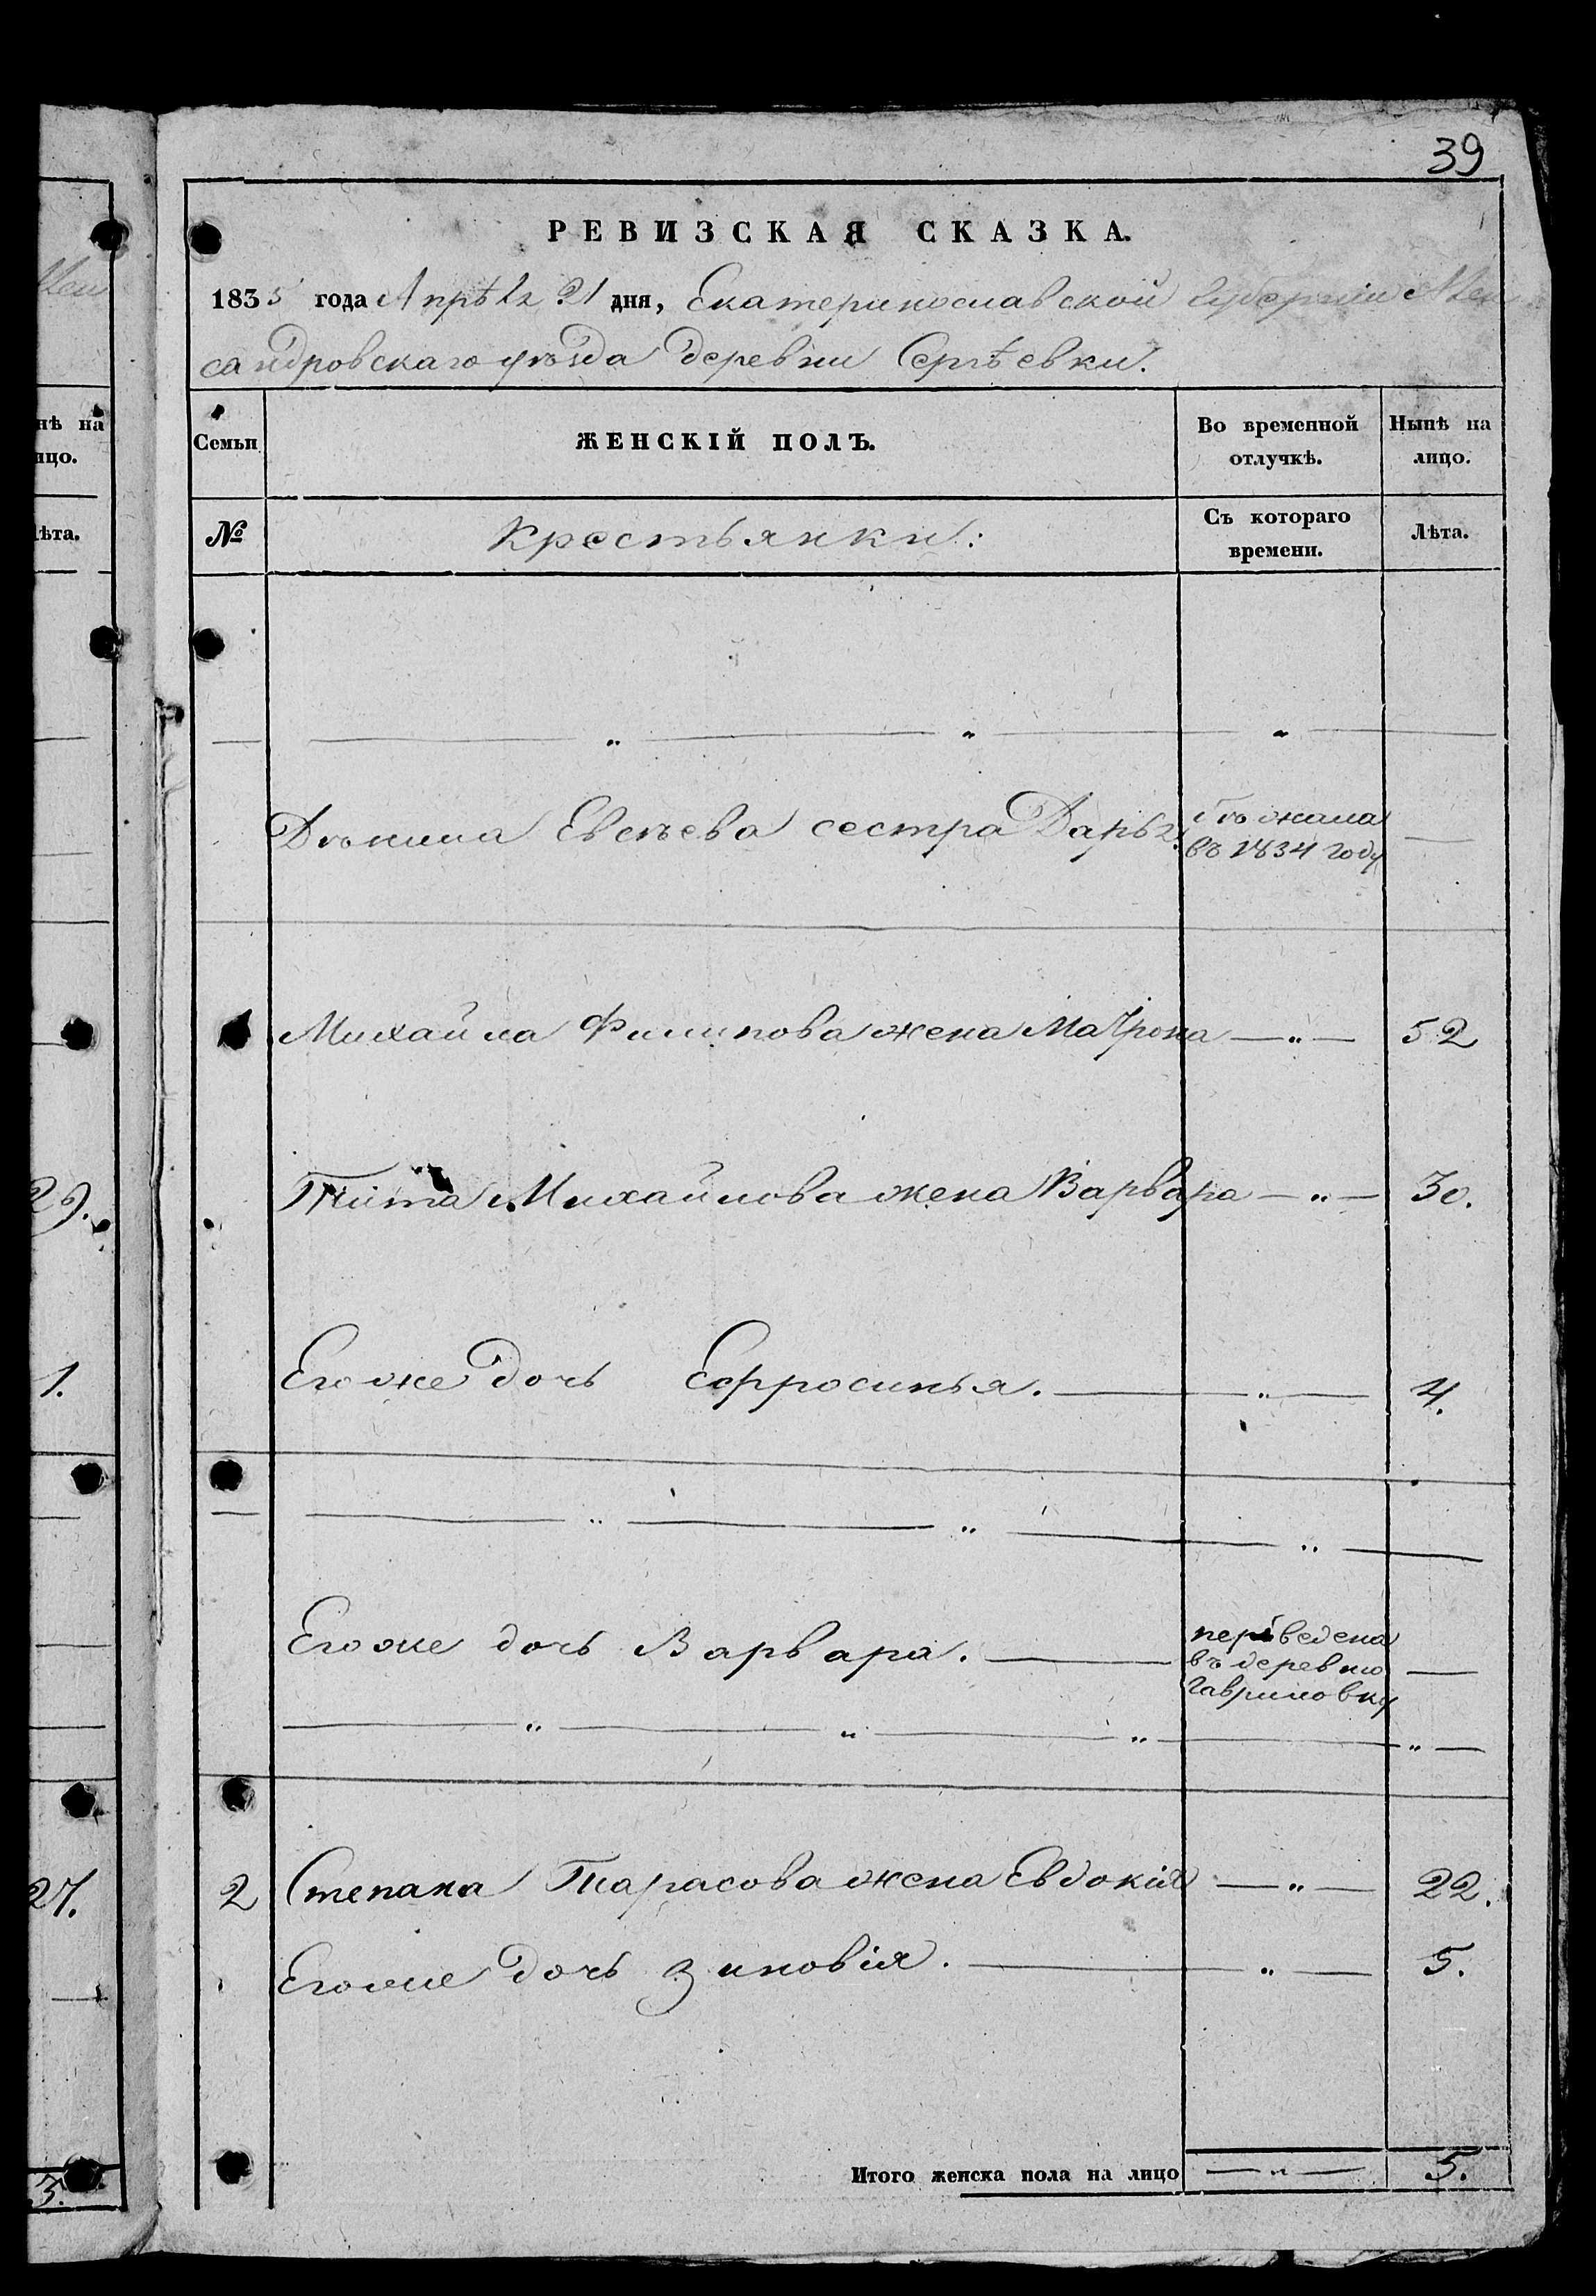 39
РЕВИЗСКАЯ СКАЗКА.
1835 года Апрѣля 21 дня, Екатеринославской Губерніи Алек
сандровскаго уѣзда деревни Сергѣевки.
нѣ на
ицо.
Семьи
ЖЕНСКІЙ ПОЛЪ.
Во временной
отлучкѣ.
Нынѣ на
лицо.
ѣта.
№
Крестьянки:
Съ котораго
времени.
Лѣта.
Евсѣева сестра Дарья.
бѣжала
въ 1834 году
Михайла Филипова жена Матрона — " — 52
29.
Тита Михайлова жена Варвара — " — 30.
1.
Егоже дочь Ефросинья. — " — 4.
Егоже дочь Варвара.
переведена
въ деревню
Гавриловку
27.
2 Степана Тарасова жена Евдокія — " — 22.
Егоже дочь Зиновія. — " — 5.
Итого женска пола на лицо — " — 5.
3.